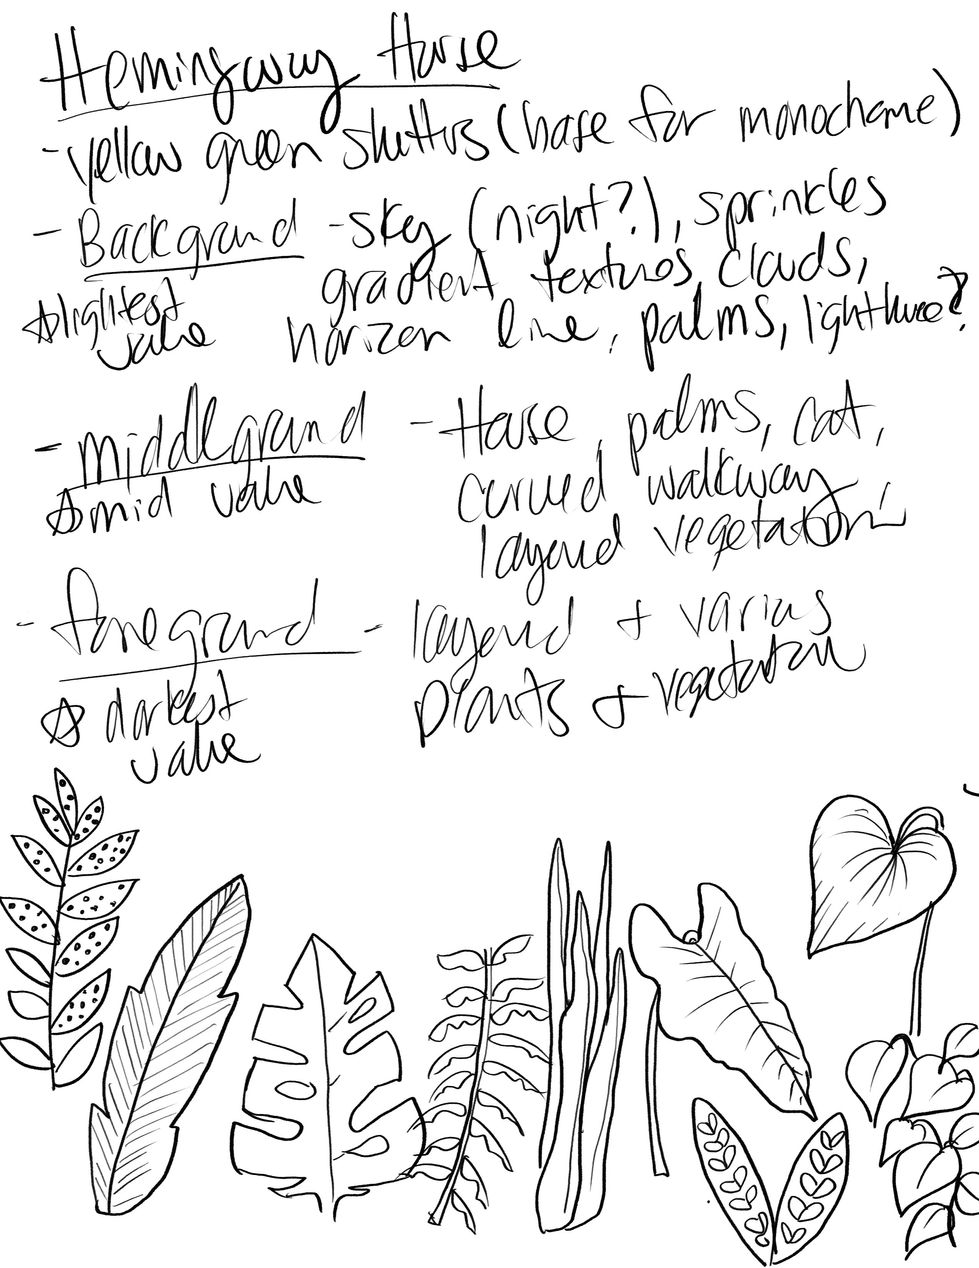 Hemingway House
- yellow green shutters (base for monochrome)
- Background - sky (night?), sprinkles
gradient textures, clouds,
☆ lightest value
horizon line, palms, lighthouse?
- middleground - House, palms, cat,
☆ mid value
curved walkway
layered vegetation
- foreground - layered + various
plants + vegetation
☆ darkest
value